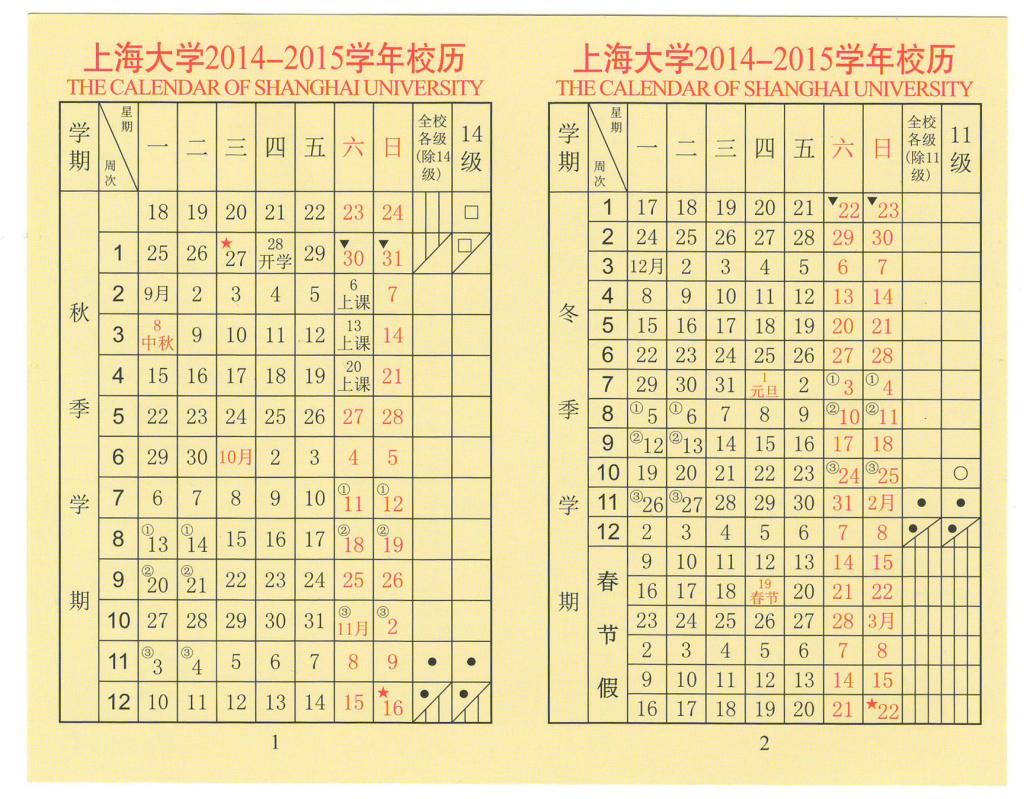 上海大学2014-2015学年校历
THE CALENDAR OF SHANGHAI UNIVERSITY
学期 星期 周次 一 二 三 四 五 六 日 全校各级(除14级) 14级
秋季学期
18 19 20 21 22 23 24 □
1 25 26 ★27 28开学 29 ▼30 ▼31 □
2 9月 2 3 4 5 6上课 7
3 8中秋 9 10 11 12 13上课 14
4 15 16 17 18 19 20上课 21
5 22 23 24 25 26 27 28
6 29 30 10月 2 3 4 5
7 6 7 8 9 10 ①11 ①12
8 ①13 ①14 15 16 17 ②18 ②19
9 ②20 ②21 22 23 24 25 26
10 27 28 29 30 31 ③11月 ③2
11 ③3 ③4 5 6 7 8 9 ● ●
12 10 11 12 13 14 15 ★16 ● ●
1
上海大学2014-2015学年校历
THE CALENDAR OF SHANGHAI UNIVERSITY
学期 星期 周次 一 二 三 四 五 六 日 全校各级(除11级) 11级
冬季学期
1 17 18 19 20 21 ▼22 ▼23
2 24 25 26 27 28 29 30
3 12月 2 3 4 5 6 7
4 8 9 10 11 12 13 14
5 15 16 17 18 19 20 21
6 22 23 24 25 26 27 28
7 29 30 31 1元旦 2 ①3 ①4
8 ①5 ①6 7 8 9 ②10 ②11
9 ②12 ②13 14 15 16 17 18
10 19 20 21 22 23 ③24 ③25 ○
11 ③26 ③27 28 29 30 31 2月 ● ●
12 2 3 4 5 6 7 8 ● ●
春节假
9 10 11 12 13 14 15
16 17 18 19春节 20 21 22
23 24 25 26 27 28 3月
2 3 4 5 6 7 8
9 10 11 12 13 14 15
16 17 18 19 20 21 ★22
2